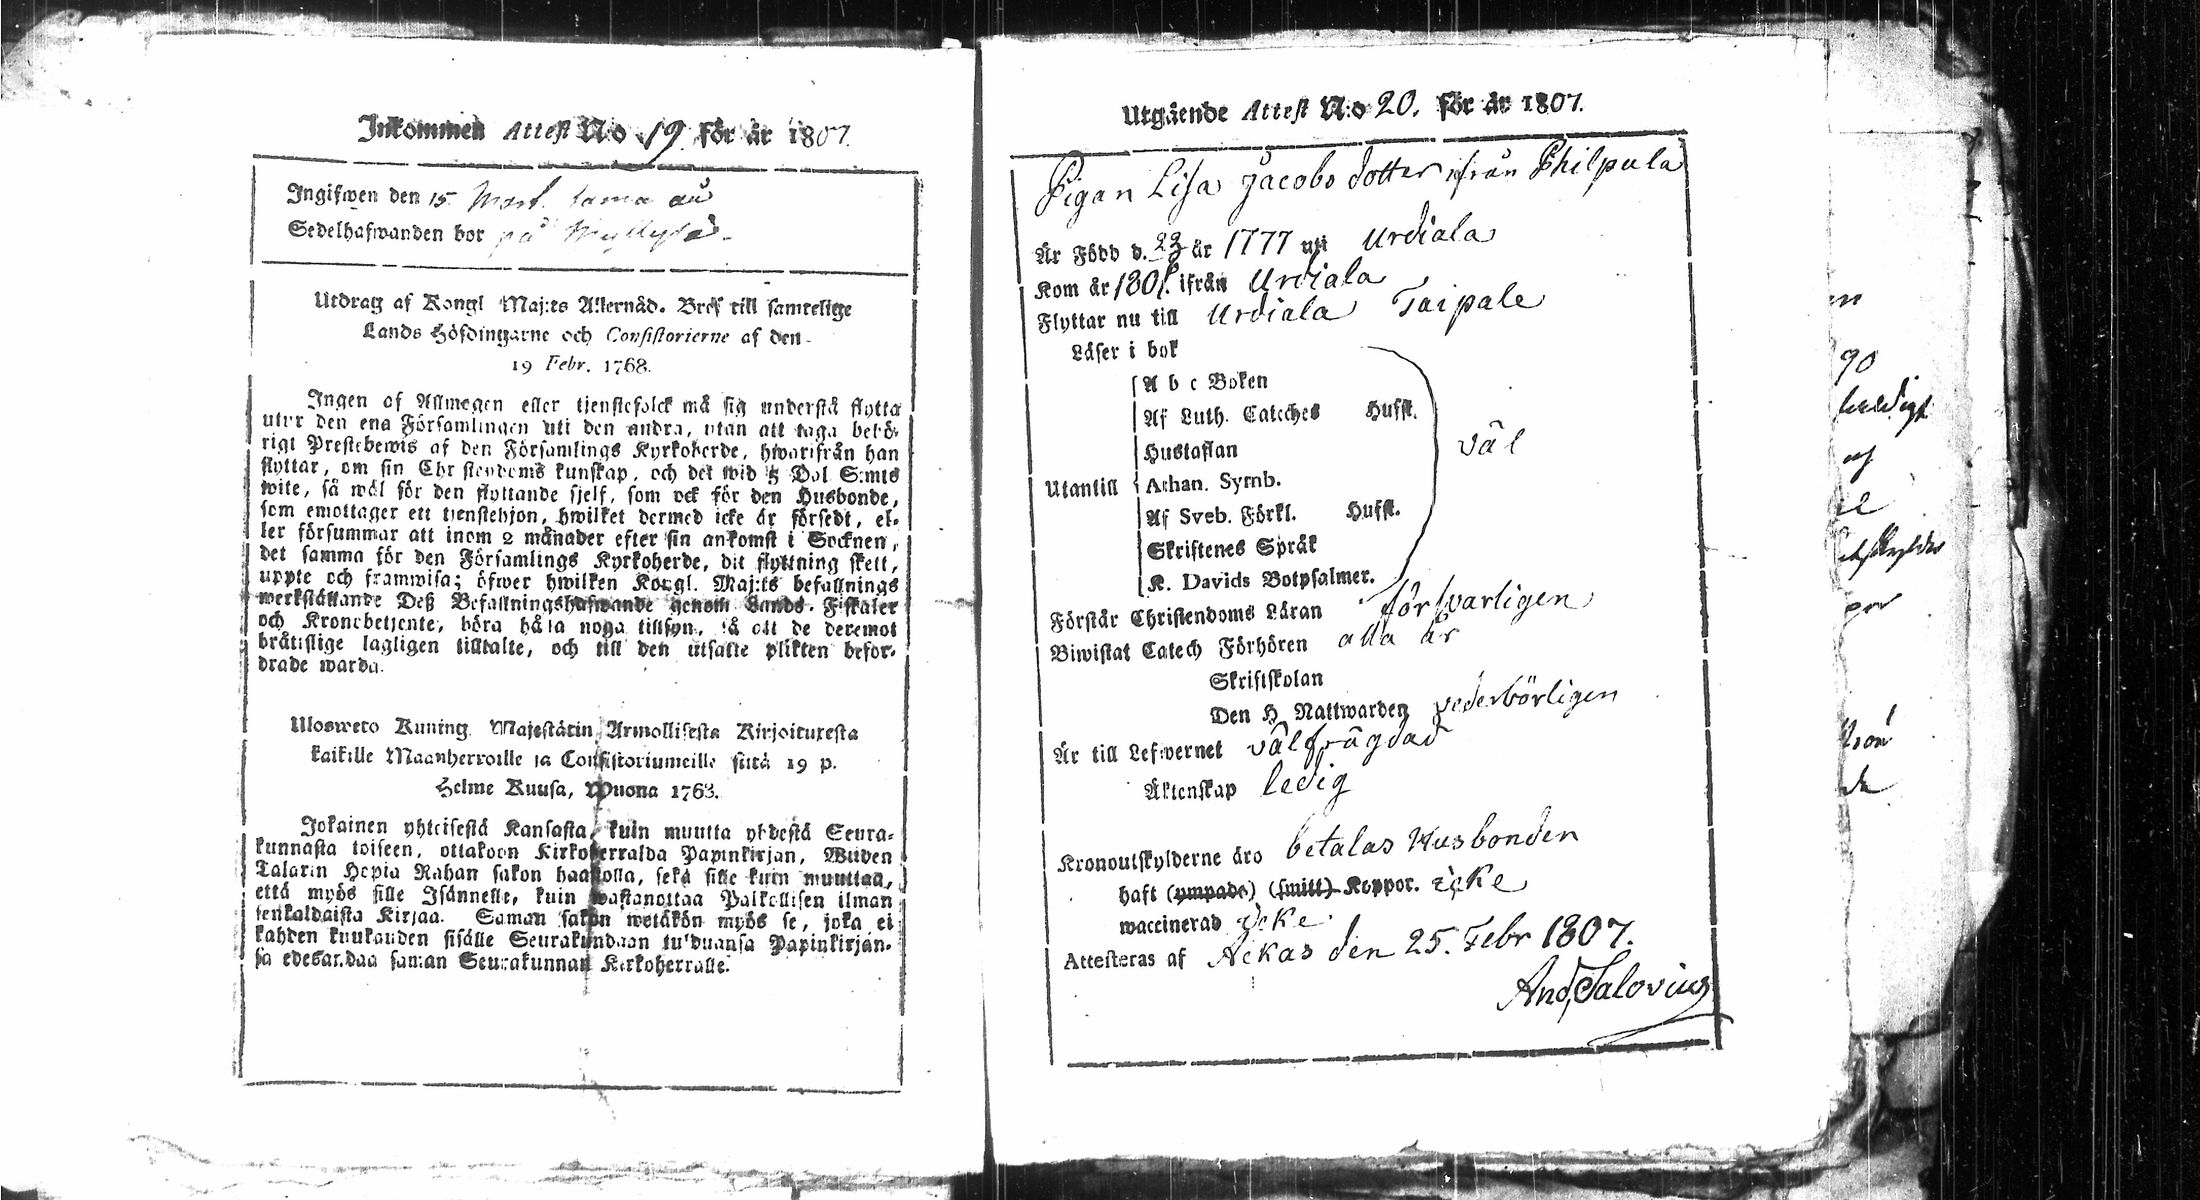 Inkommen Attest No 19 för år 1807.
Ingifwen den 15 Mart. samma åu
Sedelhafwanden bor på Myllylä.
Utdrag af Kongl Maj:ts Allernåd. Bref till samtelige
Lands Höfdingarne och Consistorierne af den
19 Febr. 1768.
Ingen af Allmogen eller tjenstefolck må sig understå flytta
utur den ena Församlingen uti den andra, utan att taga behö-
rigt Prestebewis af den Församlings Kyrkoherde, hwarifrån han
flyttar, om sin Christendoms kunskap, och det wid 5 Dal S:mts
wite, så wäl för den flyttande sjelf, som ock för den Husbonde,
som emottager ett tjenstehjon, hwilket dermed icke är försedt, el-
ler försummar att inom 2 månader efter sin ankomst i Socknen,
det samma för den Församlings Kyrkoherde, dit flyttning skett,
uppte och framwisa; öfwer hwilken Kongl. Maj:ts befallnings
werkställande Deß Befallningshafwande genom Lands-Fiskaler
och Kronobetjente, böra hålla noga tillsyn, så att de deremot
bråtislige lagligen tilltalte, och till den utsatte plikten befor-
drade warda.
Ulosweto Kuning. Majestätin Armollisesta Kirjoituxesta
kaikille Maanherroille ja Consistoriumeille siitä 19 p.
Helme Kuusa, Wuona 1768.
Jokainen yhteisestä Kansasta, kuin muutta yhdestä Seura-
kunnasta toiseen, ottakoon Kirkoherralda Papinkirjan, Wiiden
Talarin Hopia Rahan sakon haastolla, sekä sille kuin muuttaa,
että myös sille Isännelle, kuin wastanottaa Palkollisen ilman
senkaldaista Kirjaa. Saman sakon wetäkön myös se, joka ei
kahden kuukauden sisälle Seurakundaan tulduansa Papinkirjan-
sa edesandaa saman Seurakunnan Kirkoherralle.
Utgående Attest N:o 20. för år 1807.
Pigan Lisa Jacobs dotter ifrån Philpula
Är Född d. 23 år 1777 uti Urdiala
Kom år 1801. ifrån Urdiala
Flyttar nu till Urdiala Taipale
Läser i bok
A b c Boken
Af Luth. Catéches Husst.
Hustaflan
väl
Utantill Athan. Symb.
Af Sveb. Förkl. Husst.
Skriftenes Språk
K. Davids Botpsalmer.
Förstår Christendoms Läran försvarligen
Biwistat Catech Förhören alla år
Skriftskolan
Den H. Nattwarden vederbörligen
Är till Lefwernet välfrägdad
Äktenskap ledig
Kronoutskylderne äro betalas Husbonden
haft (ympade) (smitt) Koppor. icke
waccinerad icke
Attesteras af Ackas den 25. Febr 1807.
And. Salovius